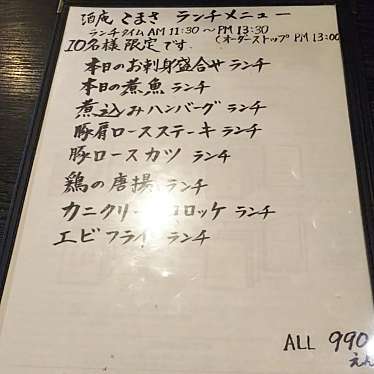 酒庵 ごまさ ランチメニュー
ランチタイム AM 11:30 〜 PM 13:30
(オーダーストップ PM 13:00)
10名様限定です.
本日のお刺身盛合せ ランチ
本日の煮魚 ランチ
煮込みハンバーグ ランチ
豚肩ロースステーキ ランチ
豚ロースカツ ランチ
鶏の唐揚 ランチ
カニクリームコロッケ ランチ
エビフライ ランチ
ALL 990
えん